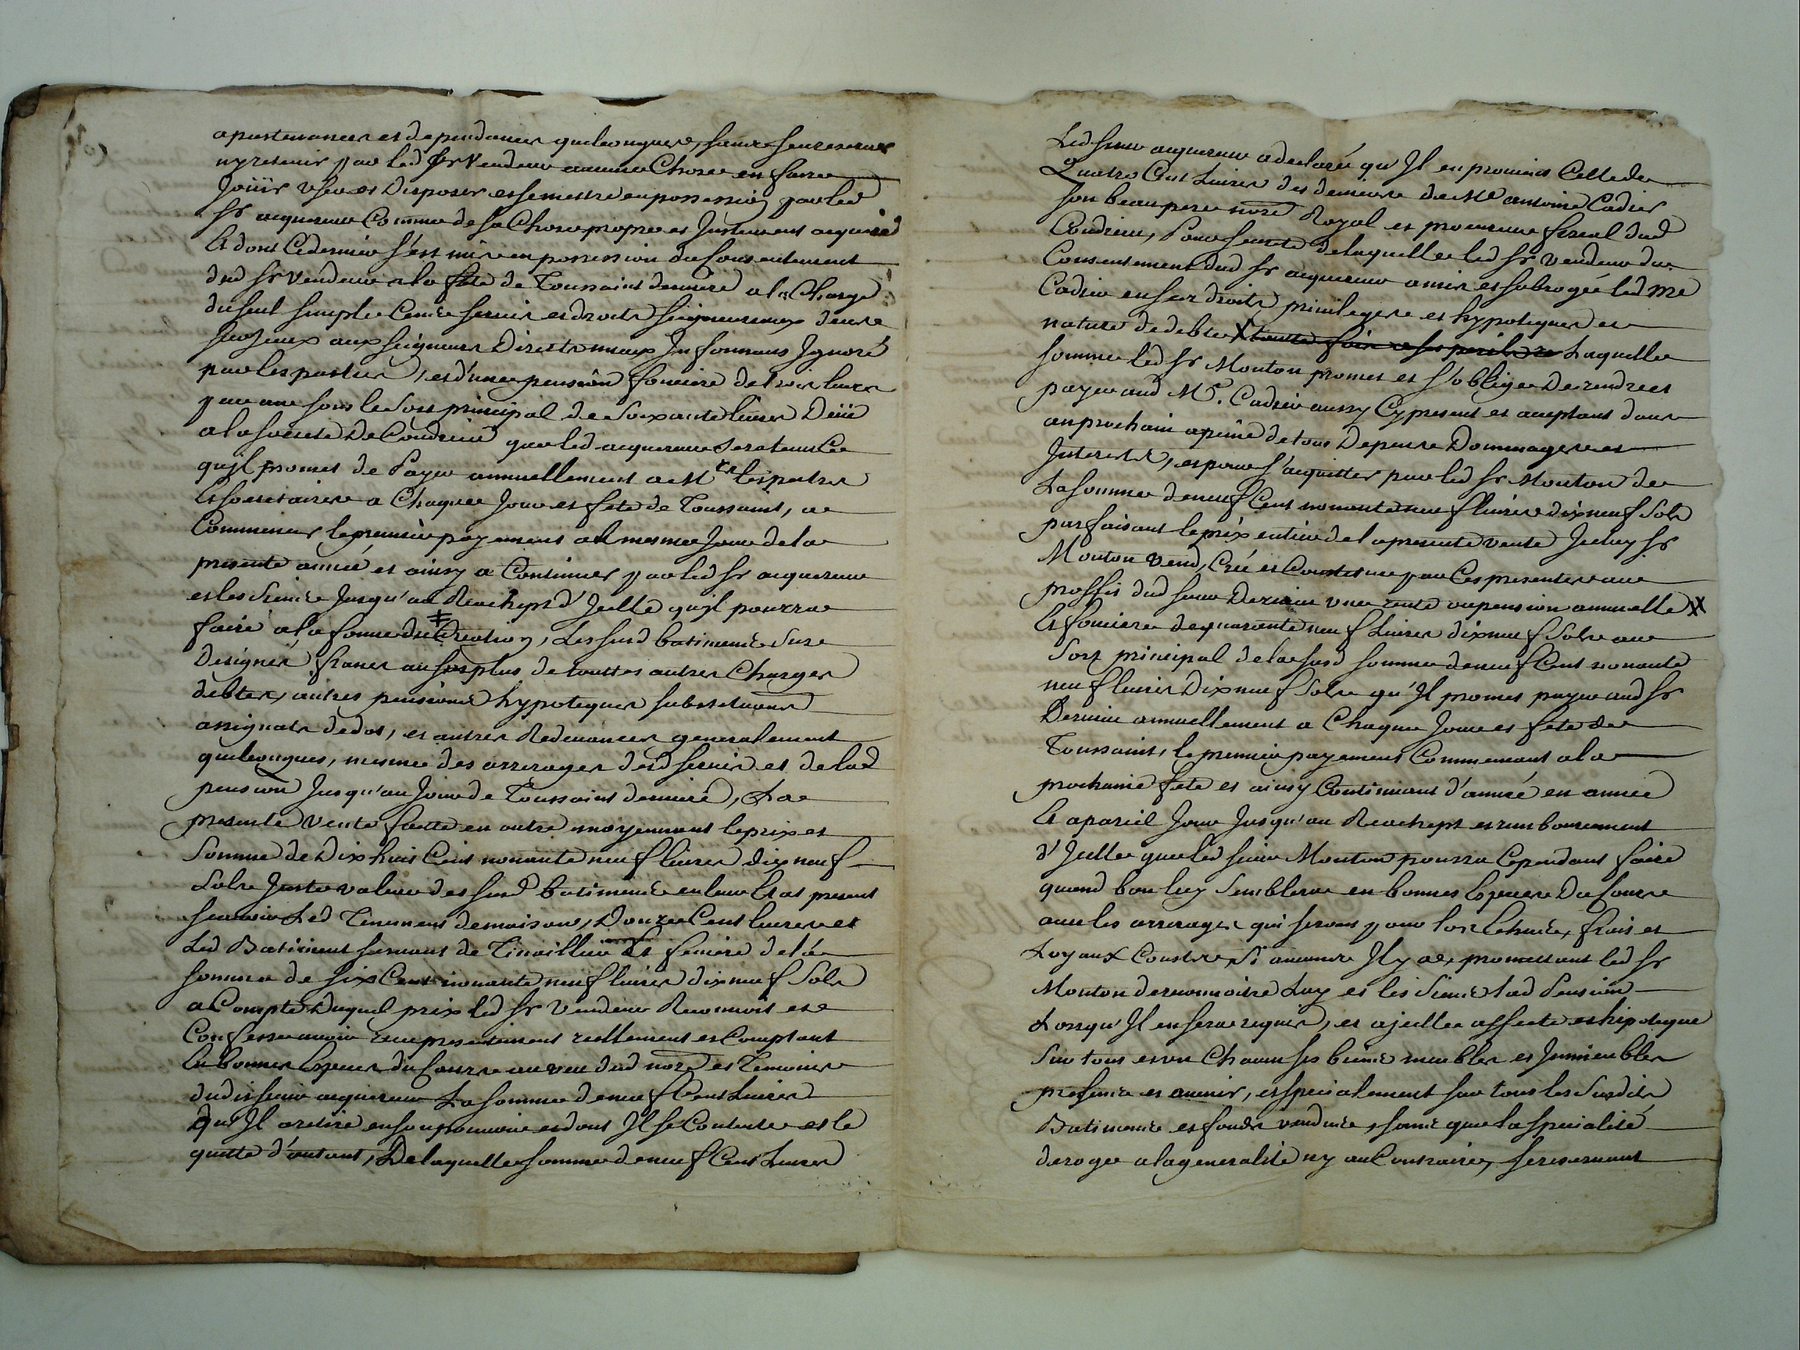 apartenances et dependances quelconques, sans se reserver
ny retenir par led Sr Vendeur aucune Chose en faire
Joüir user et Disposer et se mettre en possession par led
Sr acquereur Comme de sa Chose propre et Justement acquise
Et dont Ce dernier s'est mis en possession du Consentement
dud Sr Vendeur a la fête de Toussaint derniere a la Charge
du seul simple Cence servis et droits seigneuriaux deus
aux seigneurs Directs mieux Informés Ignoré
par les parties, et d'une pension fonciere de trois livres
par an sous le Sort principal de Soixante livres Deüe
a la societé De Condrieu que led acquereur sera tenu Ce
qu'jl promet de Payer annuellement a Mrs les prestres
Et societaires a Chaque Jour et fete de Toussaint, a
Commencer le premier payement al mesme Jour de la
presente année et ainsy a Continuer par led Sr acquereur
et les Siens Jusqu'au Reachept d'Jcelle qu'jl pourra
faire a la forme du Creation, Les susd batiments sus
designés francs au surplus de touttes autres Charges
debtes, autres pensions hypoteques substitutions
assignats de dot, et autres Redevances generalement
quelconques, mesme des arrerages desd servis et de lad
pension Jusqu'au Jour de Toussaint derniere, La
presente vente faitte en outre moyennant le prix et
Somme de Dix huit Cent nonante neuf livres dix neuf
Sols Juste valeur des susd batiments en leur Etat present
sçavoir Led Tenement de maison, Douze Cent livres et
Led Batiment servant de Tinaillier et feniere de la
somme de six Cent nonante neuf livres dix neuf Sols
a Compte Duquel prix led Sr Vendeur Reconnoit et
Confesse avoir receu presentement reellement et Comptant
En bonnes Especes du Cours au veu dud nore et Temoins
dudit sieur acquereur La somme de neuf Cent Livres
Qu'Jl a retiré en son pouvoir et dont Jl se Contente et le
quitte d'autant, De laquelle somme de neuf Cent Livres
Led sieur acquereur a declaré qu'Jl en provient Celle de
Quatre Cent Livres des deniers de Me antoine Cadier
son beau pere nore Royal et procureur fiscal dud
Condrieu, Pour seureté de laquelle led Sr vendeur du
Consentement dud Sr acquereur a mis et subrogé led Me
Cadier en ses droits privileges et hypoteques et
nature de debte X Laquelle
somme led Sr Mouton promet et s'oblige De rendre et
payer aud Me. Cadier aussy Cy present et aceptant dans
an prochain a peine de tous Depens Dommages et
Interets, et pour s'acquitter par led Sr Mouton de
La somme de neuf Cent nonante neuf livres dix neuf Sols
parfaisant le prix entier de la presente vente Jceluy Sr
Mouton vend, Crée et Constitue par Ces presentes au
proffit dud sieur une rente ou pension annuelle X
Et fonciere de quarante neuf Livres dix neuf Sols au
Sort principal de la susd somme de neuf Cent nonante
neuf livres Dix neuf Sols qu'Jl promet payer aud Sr
annuellement a Chaque Jour et fete de
Toussaint, le premier payement Commencant a la
prochaine fete et ainsy Continuant d'année en année
Et a pareil Jour Jusqu'au Reachept et remboursement
d'Jcelle que led sieur Mouton pourra Cependant faire
quand bon luy semblera en bonnes Especes Du Cours
avec les arrerages qui seront pour lors Echus, frais et
Loyaux Cousts Si aucuns Jl y a, promettant led Sr
Mouton de reconnoitre Luy et les Siens lad Pension
Lorsqu'Jl en sera requis, et a jcelle affecte et hipoteque
Sur tous et un Chacun ses biens meubles et Jmmeubles
presents et avenir, et specialement sur tous les Susdits
Batiments et fonds vendus, sans que la specialité
deroge a la generalité ny au Contraire, se reservant